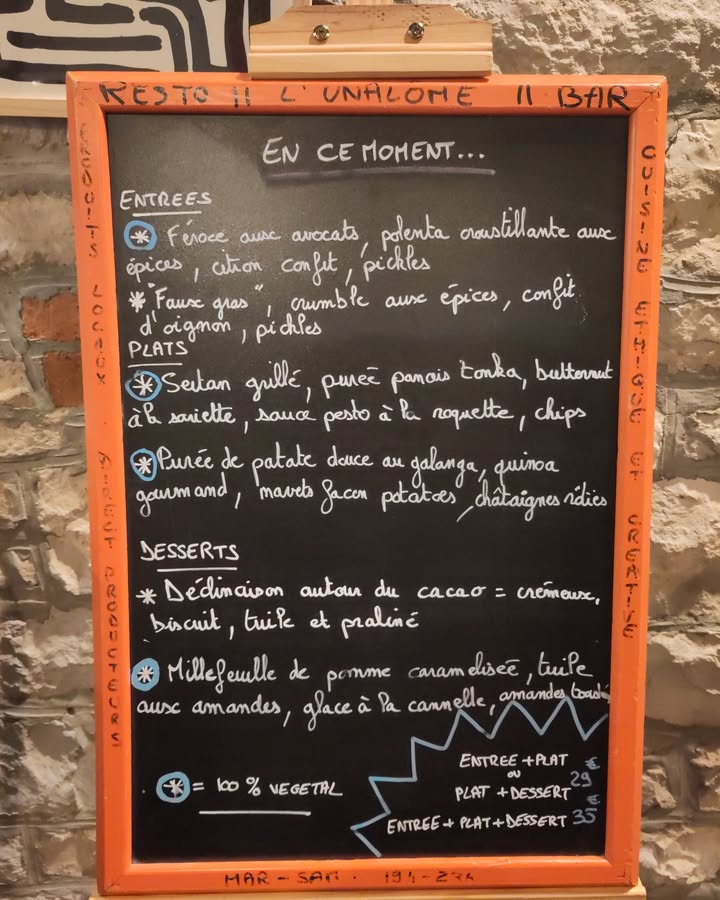 RESTO || L'UNALOME || BAR
EN CE MOMENT...
ENTREES
* Féroce aux avocats, polenta croustillante aux
épices, citron confit, pickles
* "Faux gras", crumble aux épices, confit
d'oignon, pickles
PLATS
* Seitan grillé, purée panais tonka, butternut
à la sariette, sauce pesto à la roquette, chips
* Purée de patate douce au galanga, quinoa
gourmand, navets façon potatoes, châtaignes rôties
DESSERTS
* Déclinaison autour du cacao = crémeux,
biscuit, tuile et praliné
* Millefeuille de pomme caramélisée, tuile
aux amandes, glace à la cannelle, amandes
* = 100 % VEGETAL
ENTREE + PLAT
ou
PLAT + DESSERT 29 €
ENTREE + PLAT + DESSERT 35 €
PRODUITS LOCAUX . DIRECT PRODUCTEURS
CUISINE ETHIQUE ET CREATIVE
MAR - SAM .